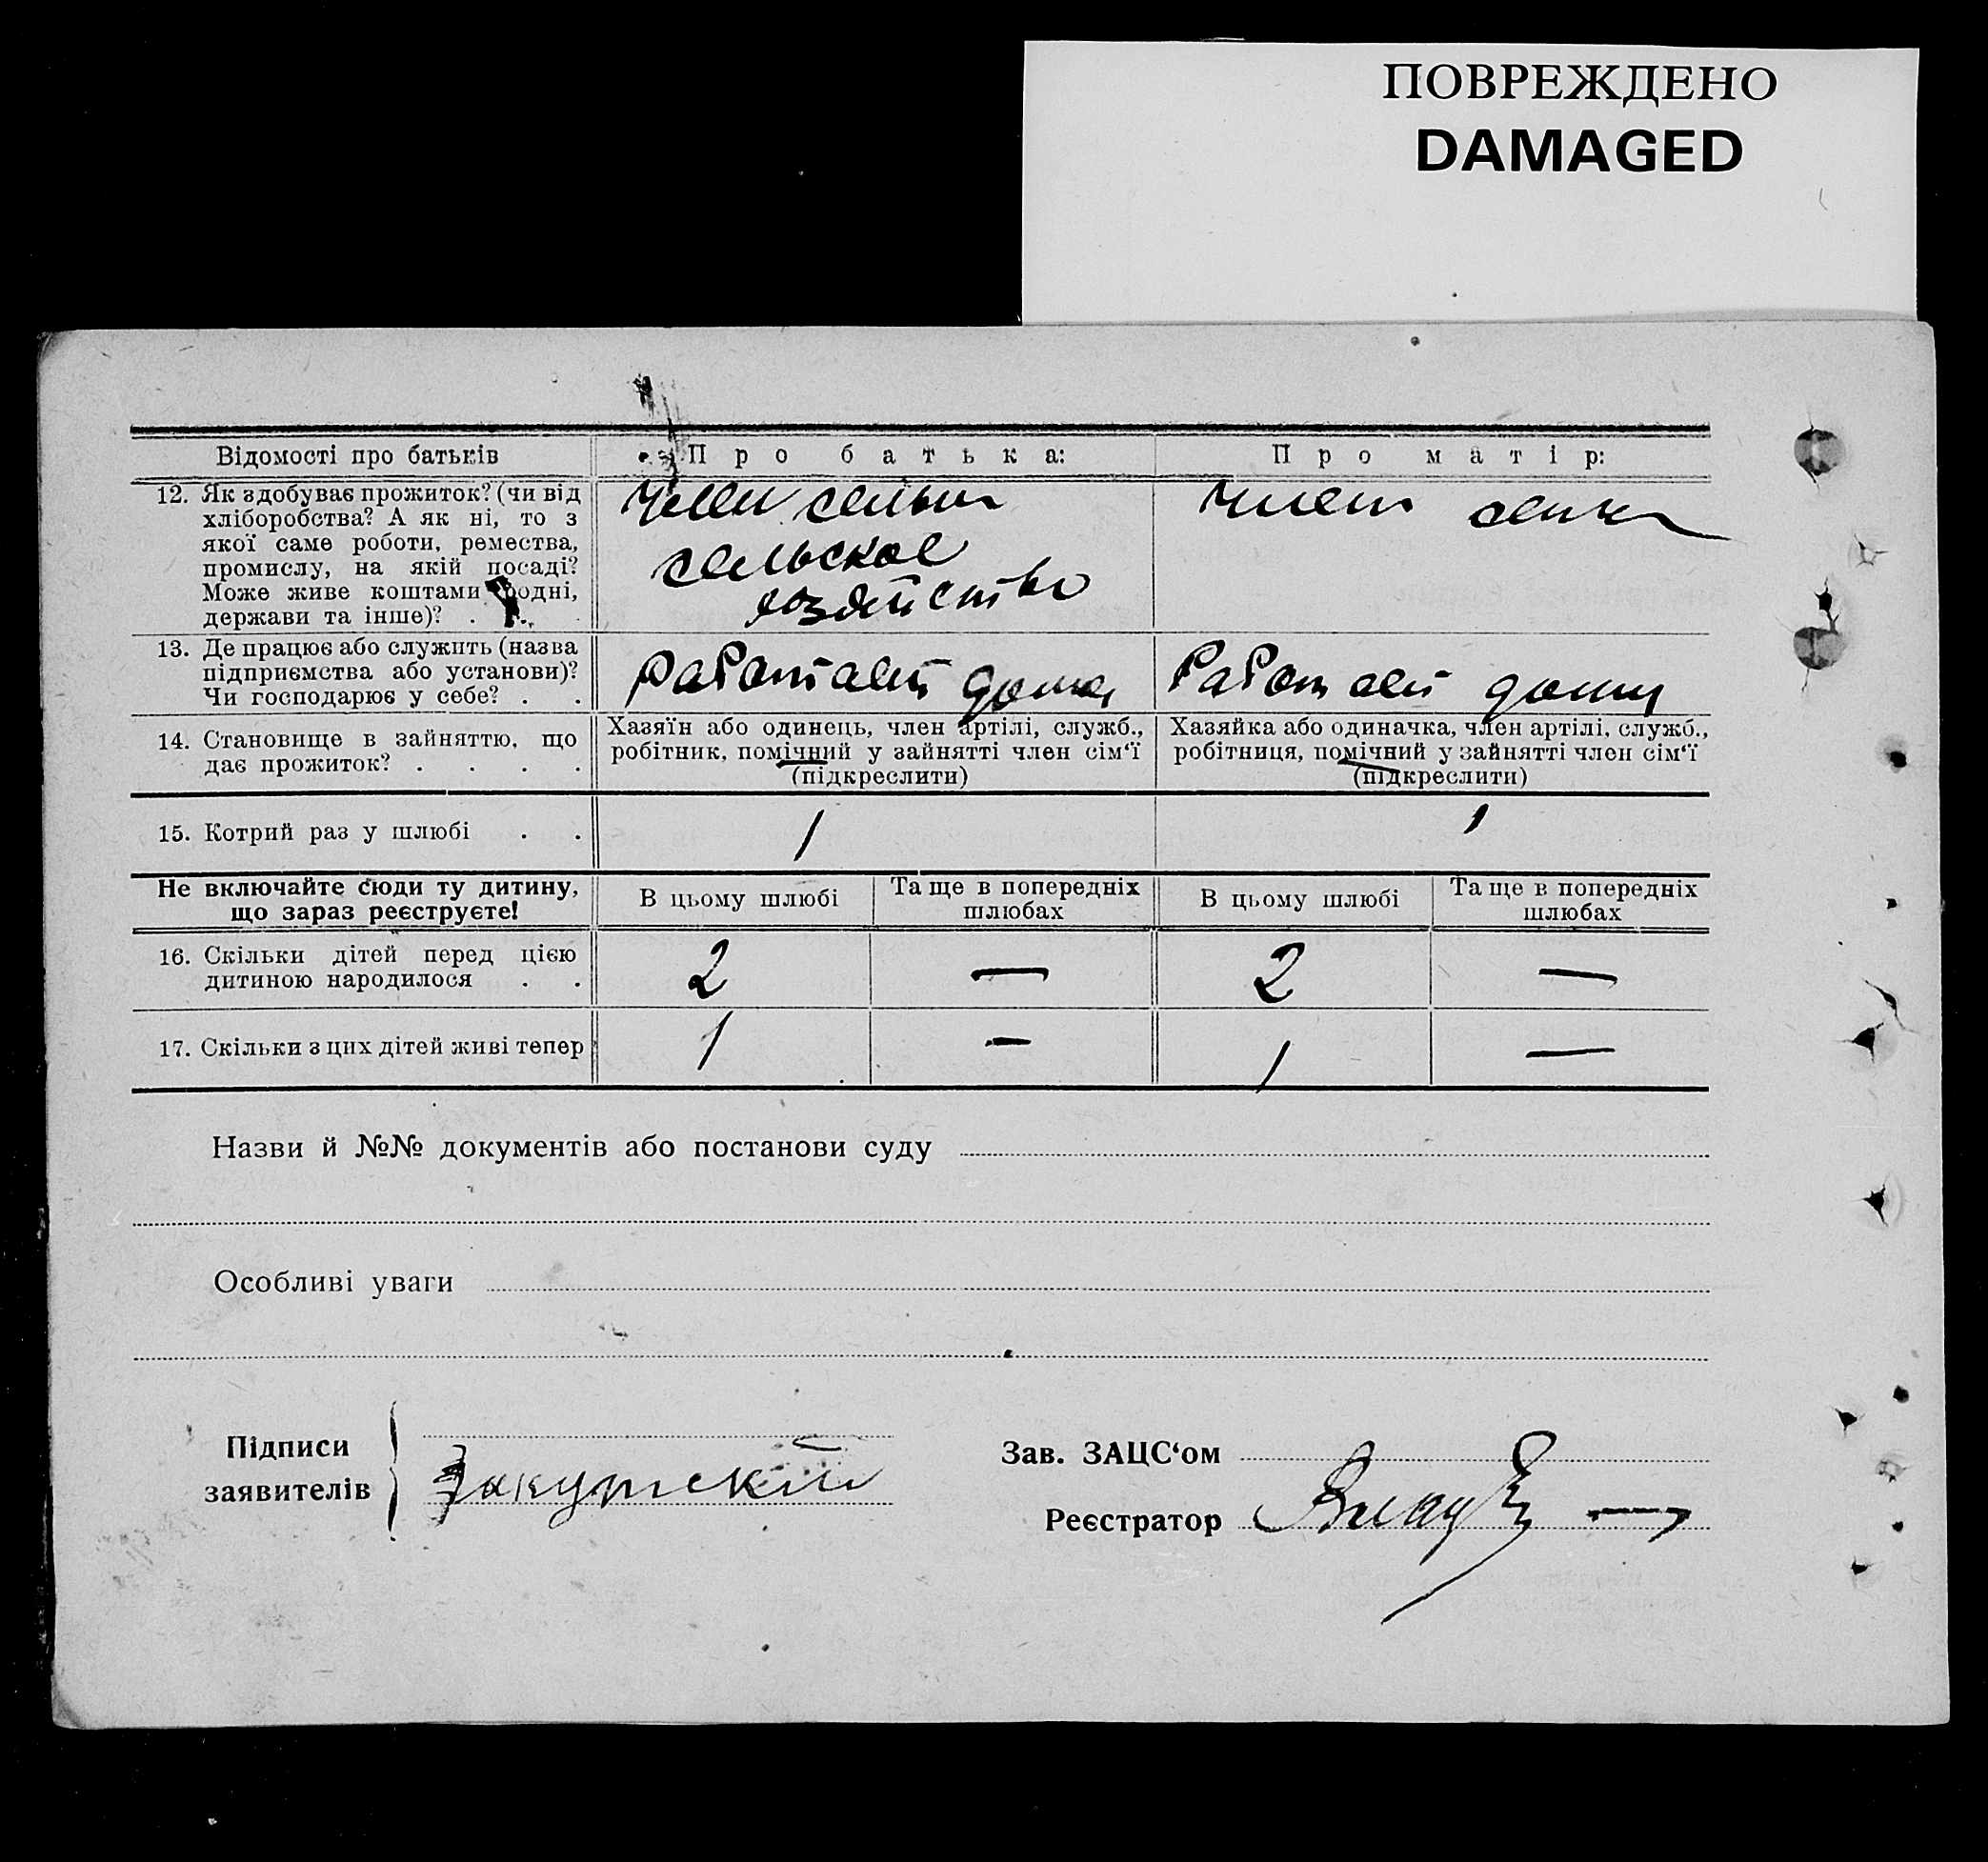 ПОВРЕЖДЕНО
DAMAGED
Відомості про батьків
Про батька:
Про матір:
12. Як здобуває прожиток? (чи від
хліборобства? А як ні, то з
якої саме роботи, ремества,
промислу, на якій посаді?
Може живе коштами родні,
держави та інше)? . .
член семьи
сельское
хозяйство
член семьи
13. Де працює або служить (назва
підприємства або установи)?
Чи господарює у себе? . .
работает дома
Работает дома
14. Становище в зайняттю, що
дає прожиток? . . . .
Хазяїн або одинець, член артілі, служб.,
робітник, помічний у зайнятті член сім‘ї
(підкреслити)
Хазяйка або одиначка, член артілі, служб.,
робітниця, помічний у зайнятті член сім‘ї
(підкреслити)
15. Котрий раз у шлюбі . .
1
1
Не включайте сюди ту дитину,
що зараз реєструєте!
В цьому шлюбі
Та ще в попередніх
шлюбах
В цьому шлюбі
Та ще в попередніх
шлюбах
16. Скільки дітей перед цією
дитиною народилося . .
2 — 2 —
17. Скільки з цих дітей живі тепер
1 — 1 —
Назви й №№ документів або постанови суду
Особливі уваги
Підписи
заявителів
Закутский
Зав. ЗАЦС‘ом
Реєстратор